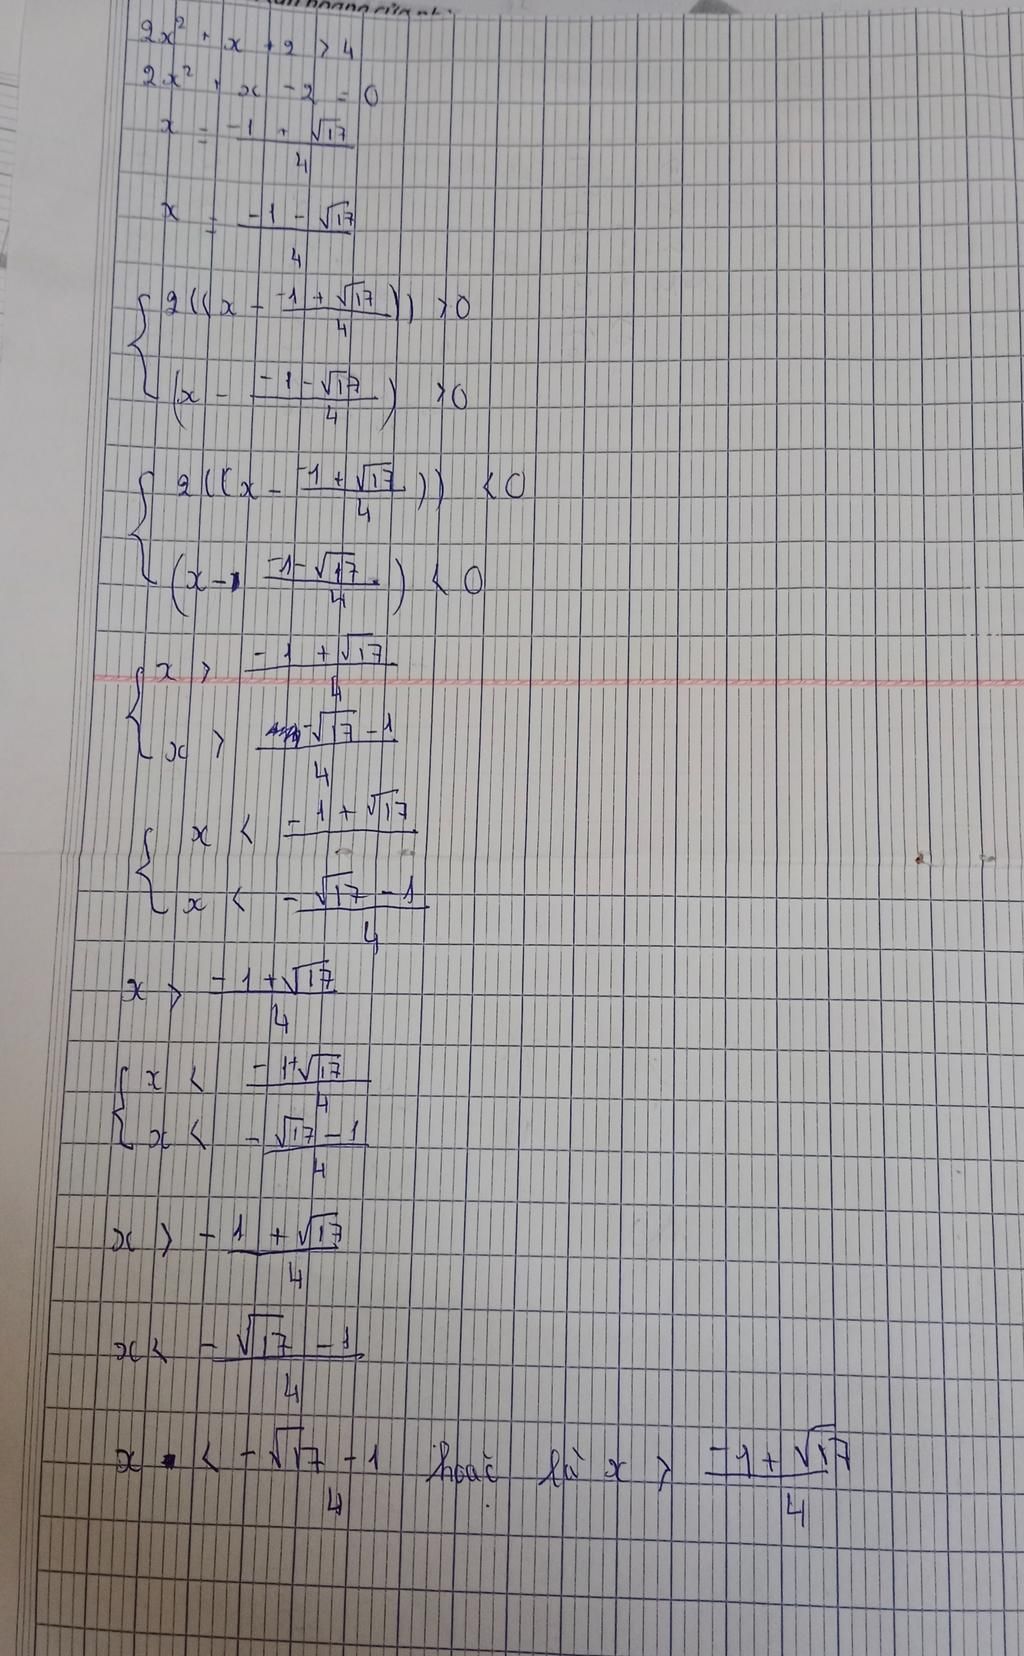 2x² + x + 2 > 4
2x² + x - 2 = 0
x = (-1 + √17)/4
x = (-1 - √17)/4
{ 2((x - (-1 + √17)/4)) > 0
(x - (-1 - √17)/4) > 0
{ 2((x - (-1 + √17)/4)) < 0
(x - (-1 - √17)/4) < 0
{ x > (-1 + √17)/4
x > (-√17 - 1)/4
{ x < -1 + √17
x < (-√17 - 1)/4
x > (-1 + √17)/4
{ x < (-1 + √17)/4
x < (-√17 - 1)/4
x > (-1 + √17)/4
x < (-√17 - 1)/4
x < (-√17 - 1)/4 hoặc là x > (-1 + √17)/4